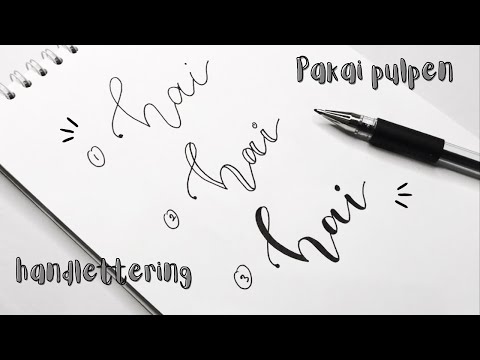 Pakai pulpen
① hai
② hai
③ hai
handlettering